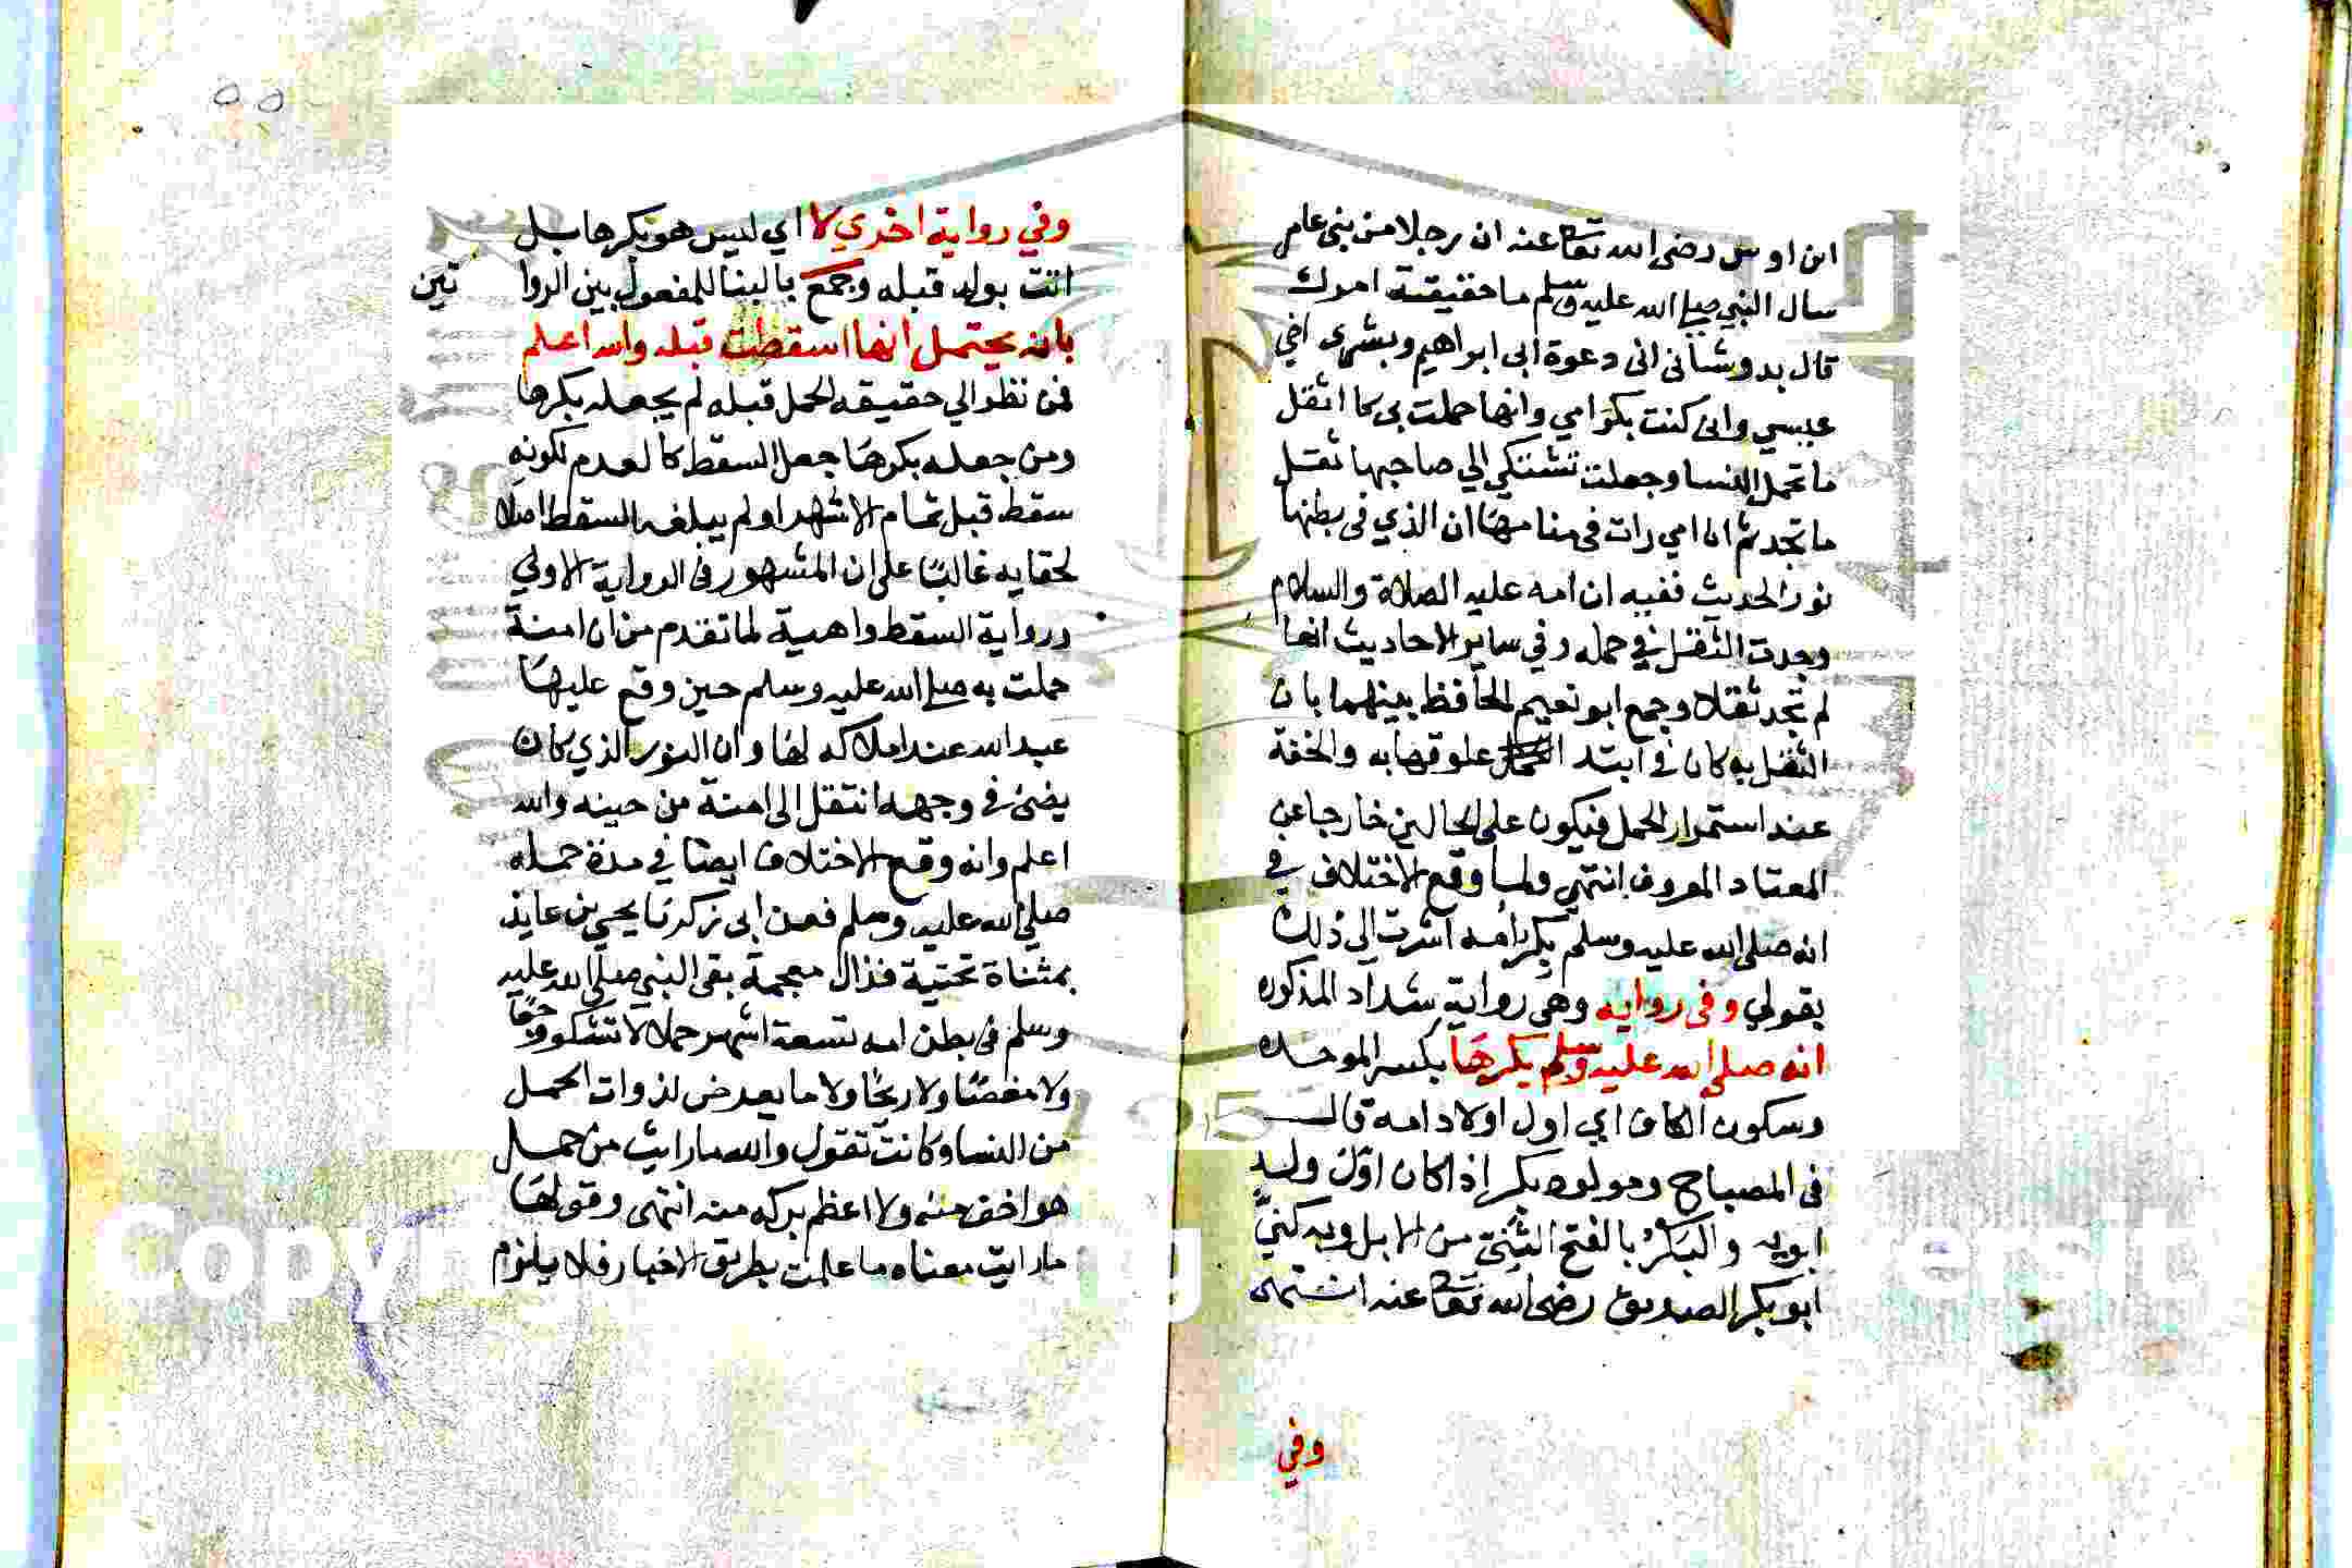 ابن اوس رضى الله تعا عنه ان رجلا من بنى عامر
سال النبي صلى الله عليه وسلم ما حقيقة امرك
قال بدو شانى انى دعوة ابى ابراهيم وبشرى اخي
عيسي وانى كنت بكر امي وانها حملت بى كا اثقل
ما تحمل النسا وجعلت تشتكي الي صاحبها ثقل
ما تجد ثم ان امي رات في منامها ان الذي فى بطنها
نور الحديث ففيه ان امه عليه الصلاة والسلام
وجدت الثقل في حمله وفي ساير الاحاديث انها
لم تجد ثقلا وجمع ابو نعيم الحافظ بينهما بان
الثقل به كان في ابتد ا علوقها به والخفة
عند استمرار الحمل فيكون على الحالين خارجا عن
المعتاد المعروف انتهى ولما وقع الاختلاف في
انه صلى الله عليه وسلم بكر امه اشرت الى ذلك
بقولي وفى روايه وهى رواية شداد المذكوره
انه صلى الله عليه وسلم بكرها بكسر الموحده
وسكون الكاف اي اول اولاد امه قال
فى المصباح ومولود بكر اذا كان اوّل ولدٍ
ابويه والبَكْرُ بالفتح الثَّنِىّ من الابل وبه كنيّ
ابو بكر الصديق رضى الله تعا عنه انتهى
وفي
٥٥
وفي رواية اخري لا اي ليس هو بكرها بل
اتت بولد قبله وجمع بالبنا للمفعول بين الروا تين
بانه يحتمل انها اسقطت قبله والله اعلم
فمن نظر الي حقيقه الحمل قبله لم يجعله بكرها
ومن جعله بكرها جعل السقط كالعدم لكونه
سقط قبل تمام الاشهر او لم يبلغه السقط اصلا
لحقايه غالبًا على ان المشهور فى الرواية الاولي
ورواية السقط واهية لما تقدم من ان امنة
حملت به صلى الله عليه وسلم حين وقع عليها
عبد الله عند املاكه لها وان النور الذي كان
يضئ في وجهه انتقل الى امنة من حينه والله
اعلم وانه وقع الاختلاف ايضا في مدة حمله
صلي الله عليه وسلم فعن ابى زكريا يحيى بن عايذ
بمثناة تحتية فذال معجمة بقى النبي صلى الله عليه
وسلم فى بطن امه تسعة اشهر حملا لا تشكو وجعًا
ولا مغصًا ولا ريحًا ولا ما يعرض لذوات الحمل
من النسا وكانت تقول والله ما رايت من حمل
هو اخف منه ولا اعظم بركه منه انتهى وقولها
ما رايت معناه ما علمت بطريق الاخبار فلا يلزم